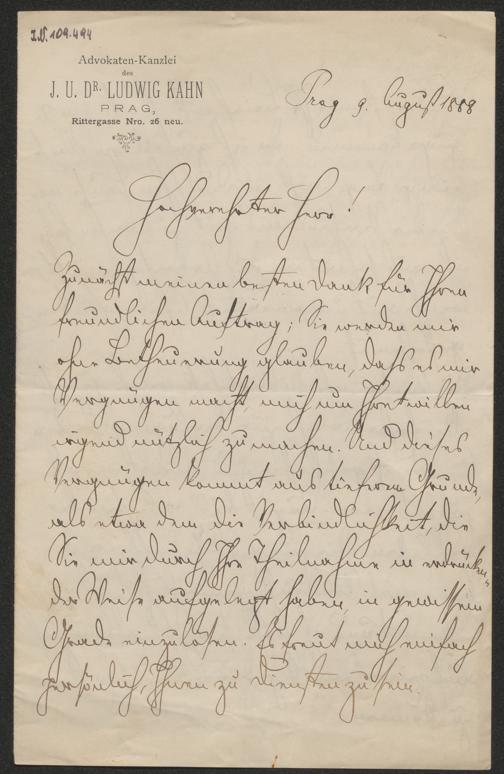 I.N. 109.494
Advokaten-Kanzlei
des
J. U. DR. LUDWIG KAHN
PRAG,
Rittergasse Nro. 26 neu.
Prag 9. August 1888
Hochverehrter Herr!
Zunächst meinen besten Dank für Ihren
freundlichen Auftrag; Sie werden mir
ohne Betheuerung glauben, daß es mir
Vergnügen macht mich um Ihretwillen
irgend nützlich zu machen. Und dieses
Vergnügen kommt aus tieferem Grunde,
als etwa dem die Verbindlichkeit, die
Sie mir durch Ihre Theilnahme in erdrücken-
der Weise auferlegt haben, in gewissem
Grade einzulösen. Es freut mich einfach
persönlich, Ihnen zu Diensten zu sein.